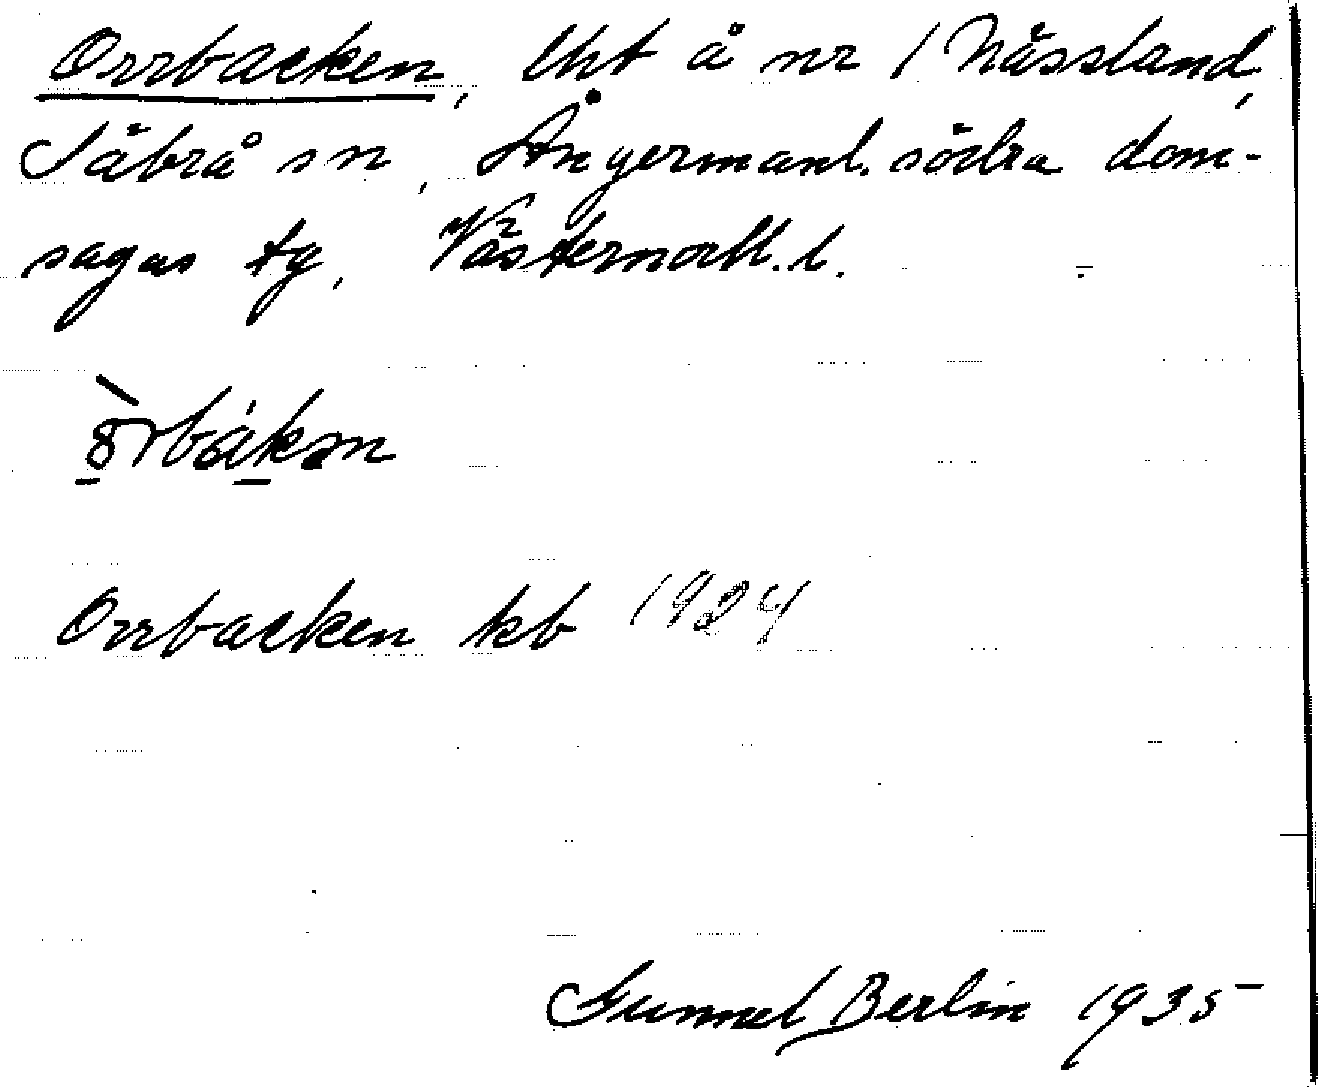 Orrbacken, lht å nr 1 Nässland,
Säbrå sn, Ångermanl. södra dom-
sagas tg, Västernorrl. l.
òrbákən
Orrbacken kb 1924
Gunnel Berlin 1935